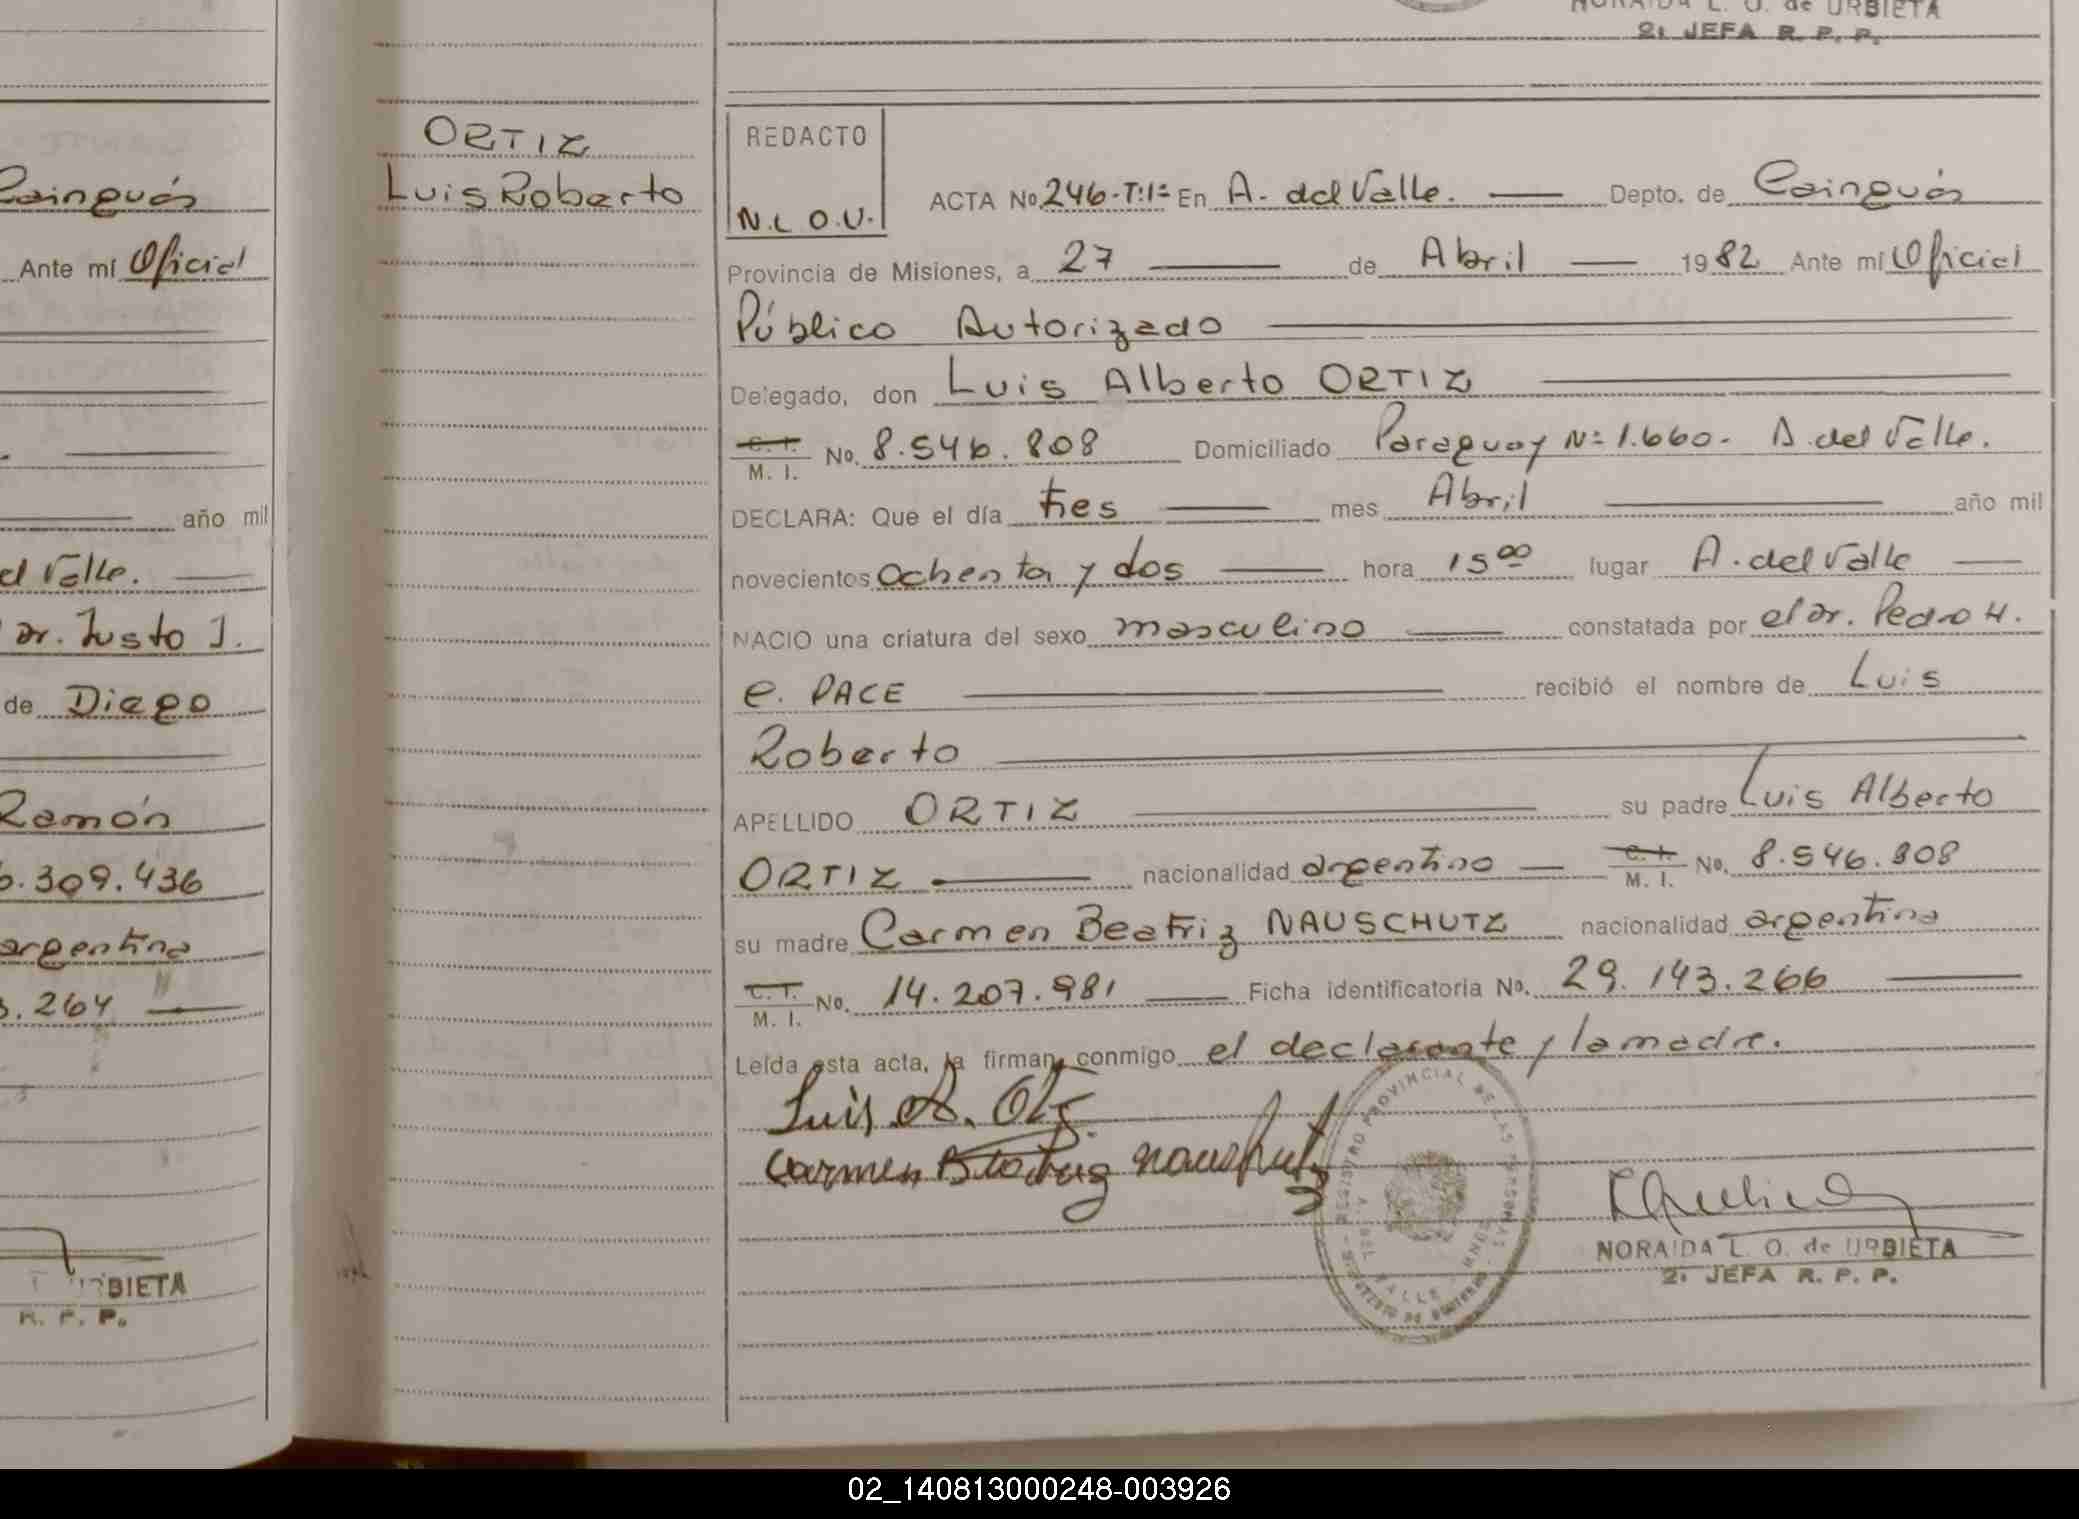 NORAIDA L. O. de URBIETA
2: JEFA R. P. P.
Cainguás
Ante mí Oficial
año mil
del Valle.
dr. Justo J.
de Diego
Ramón
.309.436
argentina
.264
URBIETA
R. P. P.
ORTIZ
Luis Roberto
REDACTO
N.L.O.U.
ACTA No. 246-T:1º En A. del Valle. Depto. de Cainguás
Provincia de Misiones, a 27 de Abril 1982 Ante mí Oficial
Público Autorizado
Delegado, don Luis Alberto ORTIZ
C. I.
M. I. No. 8.546.808 Domiciliado Paraguay Nº 1.660- A. del Valle.
DECLARA: Que el día tres mes Abril año mil
novecientos ochenta y dos hora 15 00 lugar A. del Valle
NACIO una criatura del sexo masculino constatada por el dr. Pedro H.
e. PACE recibió el nombre de Luis
Roberto
APELLIDO ORTIZ su padre Luis Alberto
ORTIZ nacionalidad argentino C. I.
M. I. No. 8.546.808
su madre Carmen Beatriz NAUSCHUTZ nacionalidad argentina
C. I.
M. I. No. 14.207.981 Ficha identificatoria No. 29.143.266
Leída esta acta, la firman conmigo el declarante y la madre.
Luis A. Ortiz
Carmen Beatriz Nauschutz
REGISTRO PROVINCIAL DE LAS PERSONAS
A. DEL VALLE - MNES
NORAIDA L. O. de URBIETA
2: JEFA R. P. P.
02_140813000248-003926